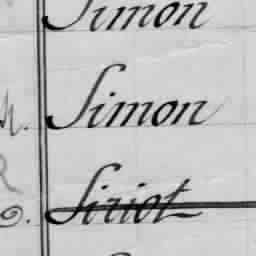 Simon
M. Simon
Siriot